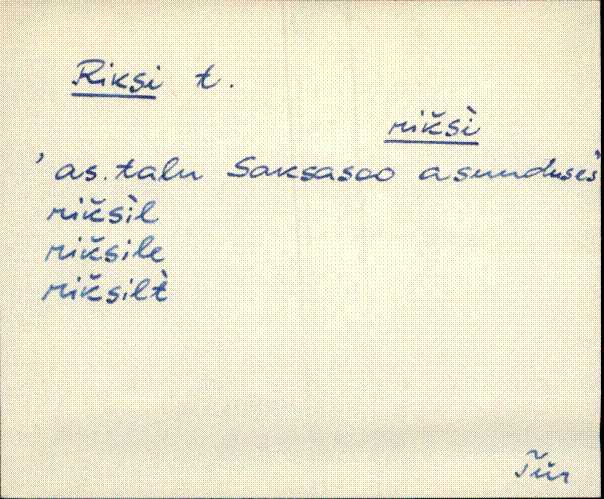 Riksi t.
rikšì
'as. talu Saksasoo asunduses'
rikšìl
rikšile
rikšilt̀
Tür